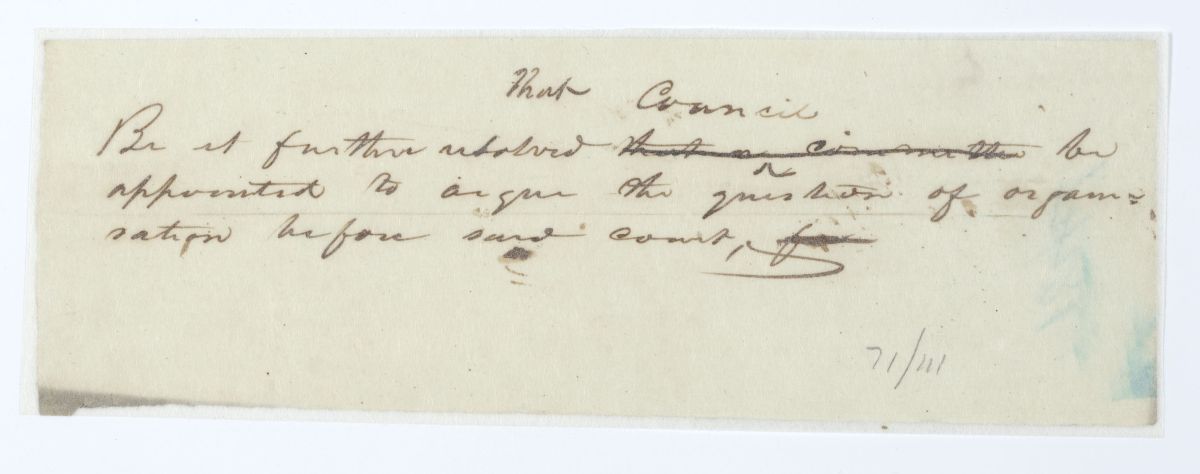 That Council
Be it further resolved that a committee be
appointed to argue the question of organi=
sation before said court,
71/111